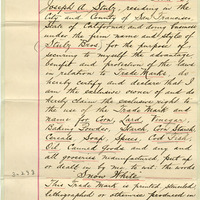 Joseph A Stuly, residing in the
City and County of San Francisco,
State of California and doing business
under the firm name and style of
Stuly Bros, for the purpose of
securing to myself the advantages
benefit and protection of the laws
in relation to Trade Marks, do
hereby certify and declare that I
am the exclusive owner of and do
hereby claim the exclusive right to
the use of the Trade Mark and
name for Corn, Lard, Vinegar,
Baking Powder, Starch, Corn Starch,
Cereals, Soap, Spices, Cod Fish,
Oil, Canned Goods and any and
all groceries manufactured put up
or dealt in by me to wit: the words
Snow White
This Trade Mark is printed, stenciled
lithographed or otherwise produced on